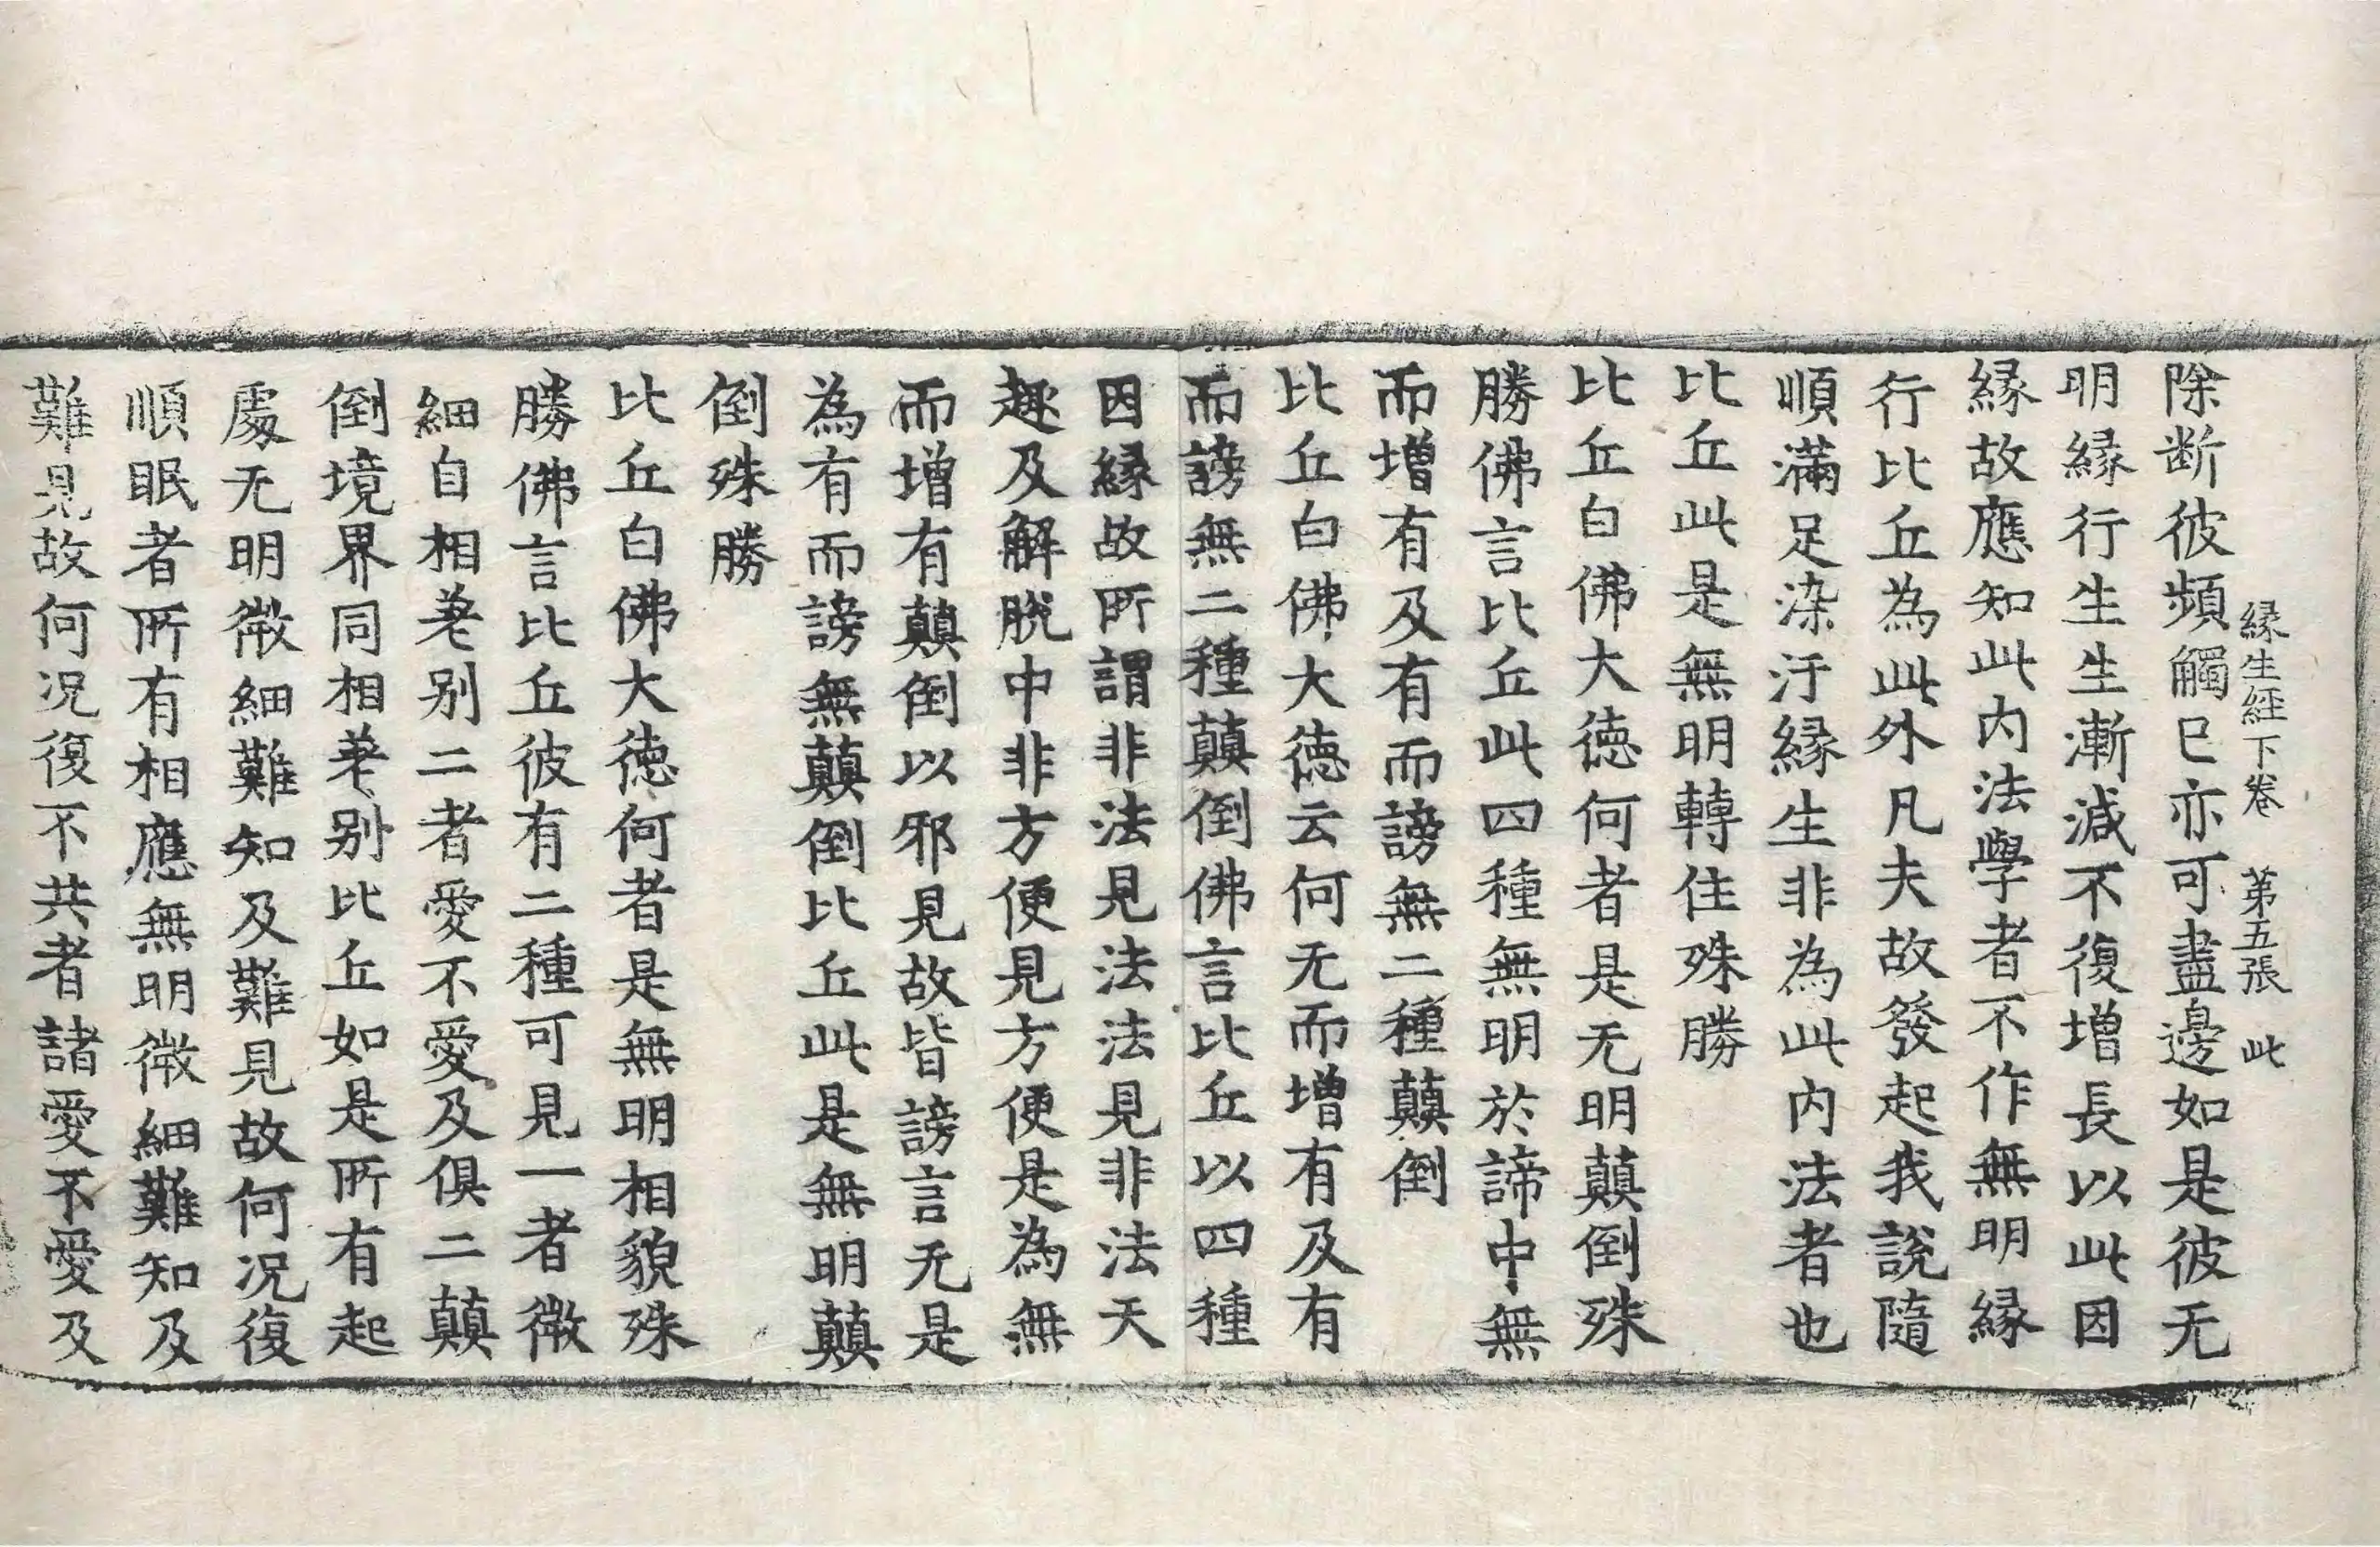 縁生經下卷 第五張 此
除断彼頻觸已亦可盡邊如是彼无
明縁行生生漸減不復增長以此因
縁故應知此内法學者不作無明縁
行比丘為此外凡夫故發起我說隨
順滿足染汙縁生非為此内法者也
比丘此是無明轉住殊勝
比丘白佛大徳何者是无明顛倒殊
勝佛言比丘此四種無明於諦中無
而增有及有而謗無二種顛倒
比丘白佛大徳云何无而增有及有
而謗無二種顛倒佛言比丘以四種
因縁故所謂非法見法法見非法天
趣及解脫中非方便見方便是為無
而增有顛倒以邪見故皆謗言无是
為有而謗無顛倒比丘此是無明顛
倒殊勝
比丘白佛大徳何者是無明相貌殊
勝佛言比丘彼有二種可見一者微
細自相差别二者愛不愛及俱二顛
倒境界同相差别比丘如是所有起
處无明微細難知及難見故何況復
順眠者所有相應無明微細難知及
難見故何况復不共者諸愛不愛及